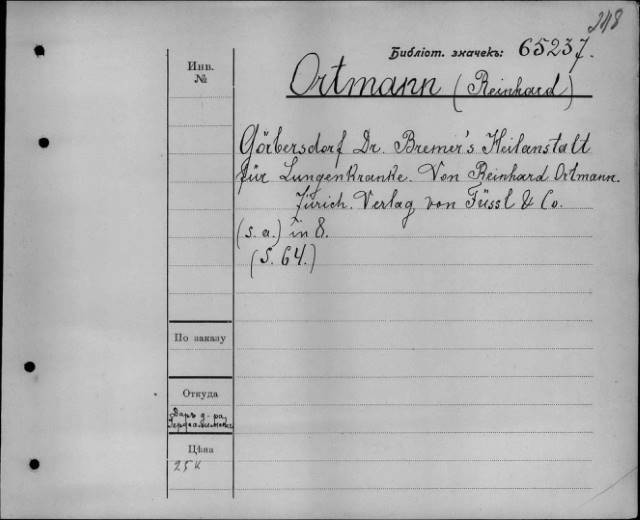 248
Библіот. значекъ: 65237.
Инв.
№
Ortmann (Reinhard)
Görbersdorf Dr. Bremer's Heilanstalt
für Lungenkranke. Von Reinhard Ortmann.
Zürich. Verlag von Füssl & Co.
(s. a.) in 8.
(S. 64.)
По заказу
Откуда
Даръ д-ра
Цѣна
25 к